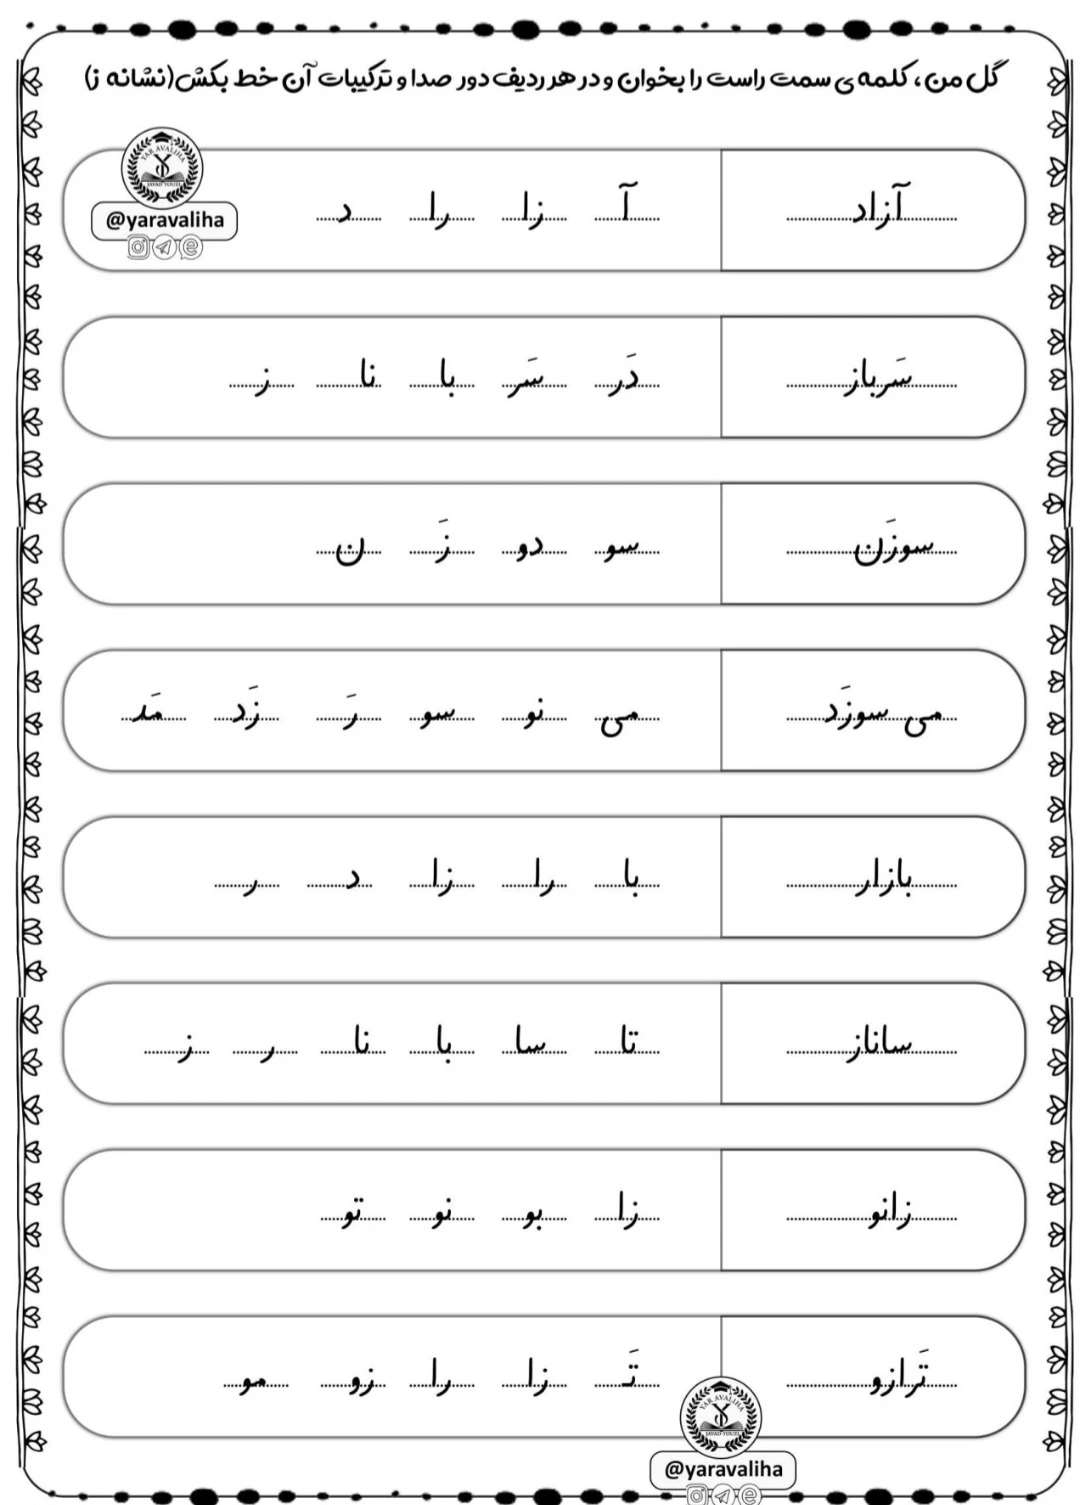 گل من ، کلمه ی سمت راست را بخوان و در هر ردیف دور صدا و ترکیبات آن خط بکش(نشانه ز)
YAR AVALIHA
JAVAD YOUEI
@yaravaliha
آزاد آ زا را د
سَرباز دَر سَر با نا ز
سوزَن سو دو زَ ن
می سوزَد می نو سو رَ زَد مَد
بازار با را زا د ر
ساناز تا سا با نا ر ز
زانو زا بو نو تو
تَرازو تَـ زا را زو مو
YAR AVALIHA
JAVAD YOUEI
@yaravaliha